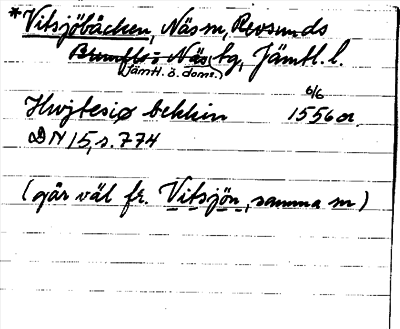 *Vitsjöbäcken, Näs sn, Revsunds
Brunflo- o Näs tg, Jämtl. l.
(Jämtl. ö. doms.)
Hwjtesiø bekkin 6/6 1556 or.
DN 15, s. 774
(går väl fr. Vitsjön, samma sn)